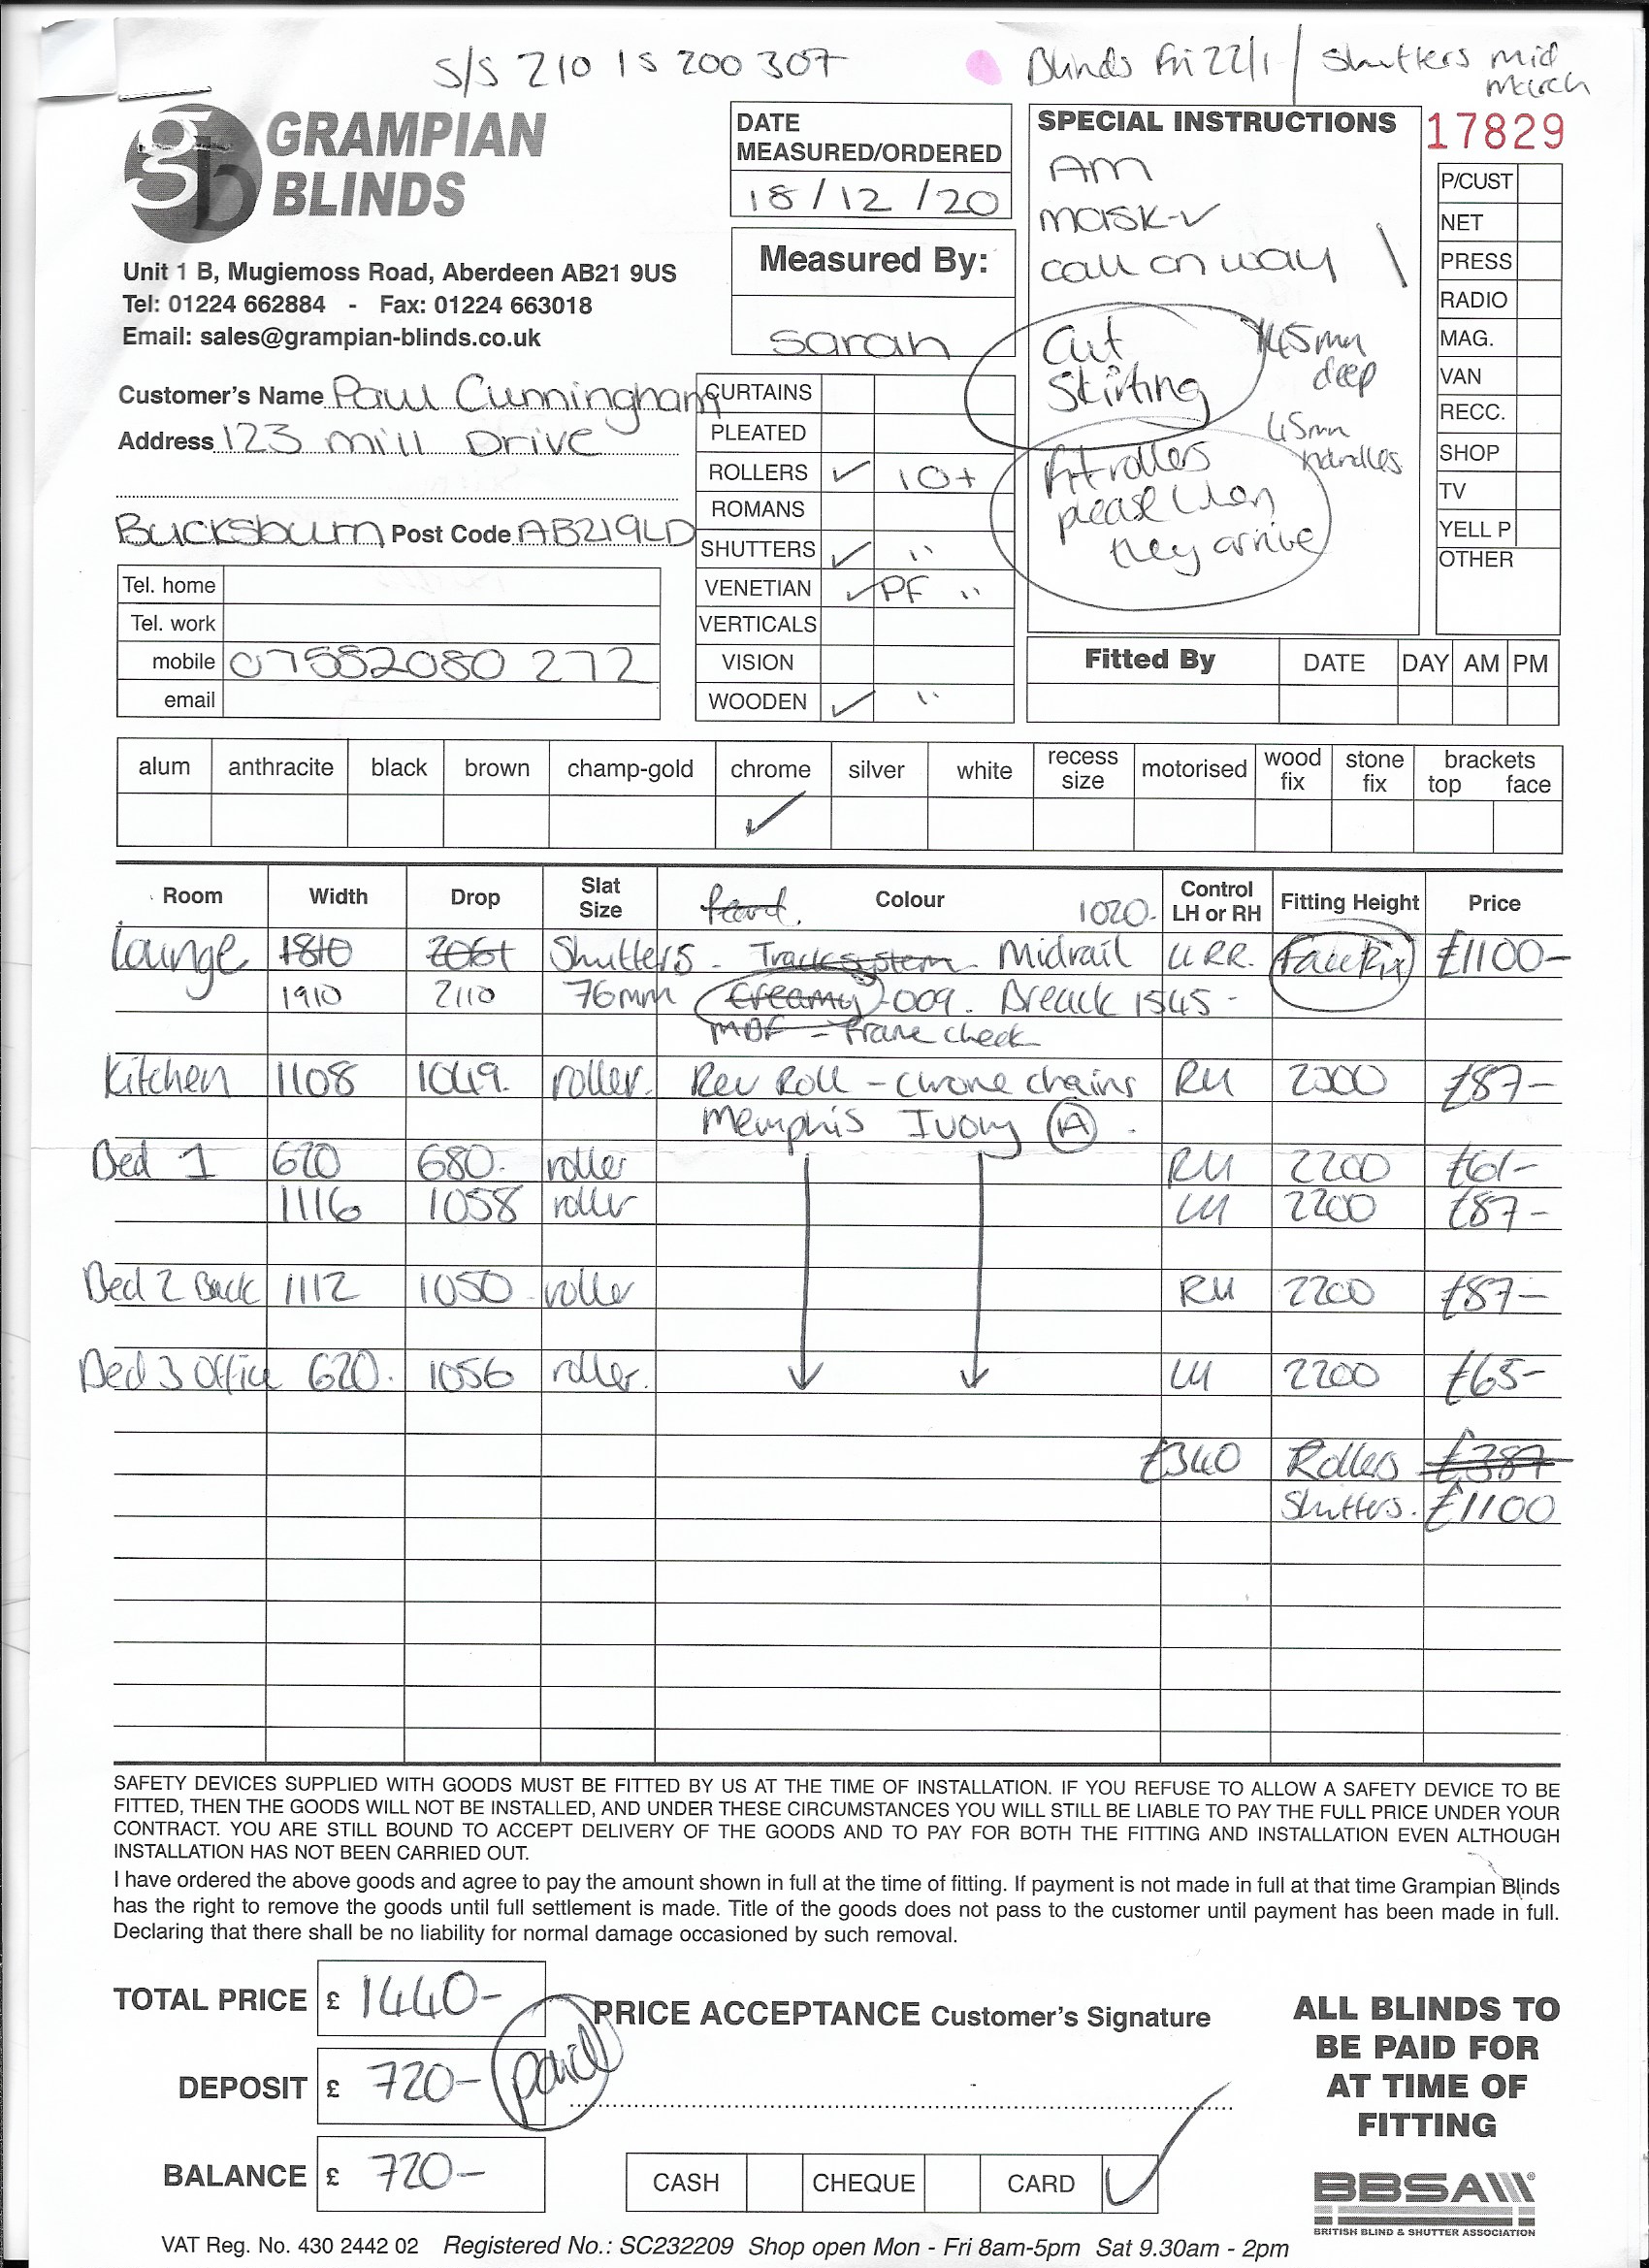 S/S 21015200307
Blinds Fri 22/1 / Shutters mid March
GRAMPIAN BLINDS
Unit 1 B, Mugiemoss Road, Aberdeen AB21 9US
Tel: 01224 662884 - Fax: 01224 663018
Email: sales@grampian-blinds.co.uk
DATE MEASURED/ORDERED
18/12/20
Measured By:
Sarah
SPECIAL INSTRUCTIONS
AM
mask-✓
call on way
Cut Skirting
45mm deep
45mm handles
Fit rollers
please when
they arrive
17829
P/CUST
NET
PRESS
RADIO
MAG.
VAN
RECC.
SHOP
TV
YELL P
OTHER
Customer's Name Paul Cunningham
Address 123 Mill Drive
Bucksburn Post Code AB219LD
Tel. home
Tel. work
mobile 07582080 272
email
CURTAINS
PLEATED
ROLLERS ✓ 10+
ROMANS
SHUTTERS ✓ "
VENETIAN ✓ PF "
VERTICALS
VISION
WOODEN ✓ "
Fitted By DATE DAY AM PM
alum anthracite black brown champ-gold chrome silver white recess size motorised wood fix stone fix brackets top face
✓
Room Width Drop Slat Size Colour 1020- Control LH or RH Fitting Height Price
Lounge 1810 2061 Shutters - Track system - Midrail LLRR. Face Fix £1100-
1910 2110 76mm Creamy -009. Break 1545-
MDF - Frame check
Kitchen 1108 1049. roller. Rev Roll - chrome chains RH 2300 £87-
Memphis Ivory A.
Bed 1 620 680. roller RH 2200 £61-
1116 1058 roller LH 2200 £87-
Bed 2 Back 1112 1050 roller RH 2200 £87-
Bed 3 Office 620. 1056 roller. LH 2200 £65-
£340 Rollers £387
Shutters. £1100
SAFETY DEVICES SUPPLIED WITH GOODS MUST BE FITTED BY US AT THE TIME OF INSTALLATION. IF YOU REFUSE TO ALLOW A SAFETY DEVICE TO BE
FITTED, THEN THE GOODS WILL NOT BE INSTALLED, AND UNDER THESE CIRCUMSTANCES YOU WILL STILL BE LIABLE TO PAY THE FULL PRICE UNDER YOUR
CONTRACT. YOU ARE STILL BOUND TO ACCEPT DELIVERY OF THE GOODS AND TO PAY FOR BOTH THE FITTING AND INSTALLATION EVEN ALTHOUGH
INSTALLATION HAS NOT BEEN CARRIED OUT.
I have ordered the above goods and agree to pay the amount shown in full at the time of fitting. If payment is not made in full at that time Grampian Blinds
has the right to remove the goods until full settlement is made. Title of the goods does not pass to the customer until payment has been made in full.
Declaring that there shall be no liability for normal damage occasioned by such removal.
TOTAL PRICE £ 1440-
DEPOSIT £ 720- paid
BALANCE £ 720-
PRICE ACCEPTANCE Customer's Signature
CASH CHEQUE CARD ✓
ALL BLINDS TO
BE PAID FOR
AT TIME OF
FITTING
BBSA
BRITISH BLIND & SHUTTER ASSOCIATION
VAT Reg. No. 430 2442 02 Registered No.: SC232209 Shop open Mon - Fri 8am-5pm Sat 9.30am - 2pm